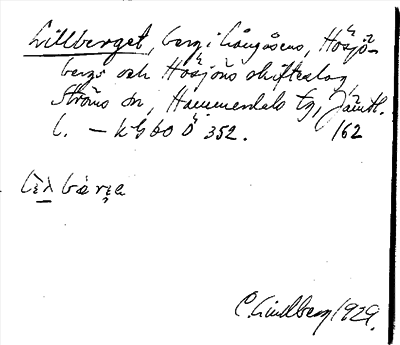 Lillberget, berg i Långåsens, Hösjö-
bergs och Hösjöns skifteslag,
Ströms sn, Hammerdals tg, Jämtl.
l. – kG 60 Ö 352. 162
C. Lindberg 1929.